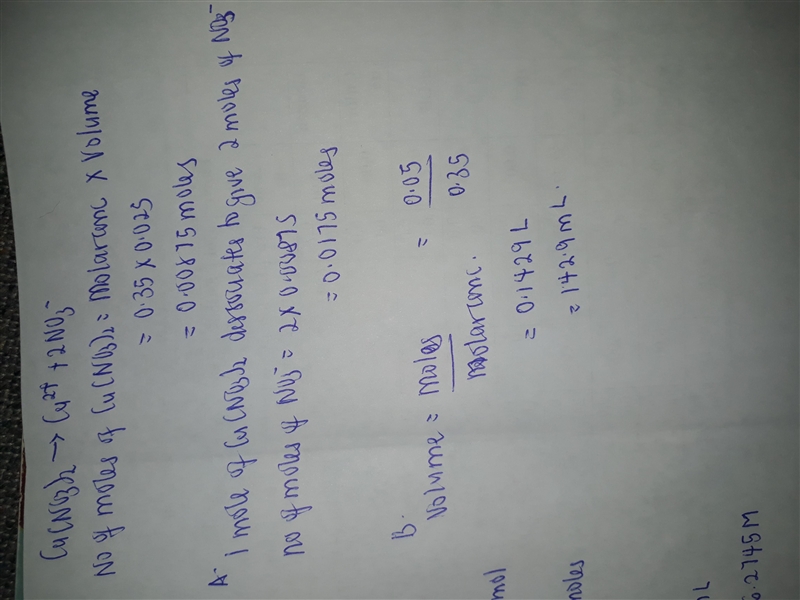 Cu(NO3)2 → Cu2+ + 2NO3-
No of moles of Cu(NO3)2 = molar conc × Volume
= 0.35 × 0.025
= 0.00875 moles
A. 1 mole of Cu(NO3)2 dissociates to give 2 moles of NO3-
no of moles of NO3- = 2 × 0.00875
= 0.0175 moles
B.
Volume = moles / molar conc. = 0.05 / 0.35
= 0.1429 L
= 142.9 mL.
mol
moles
L
6.2745M